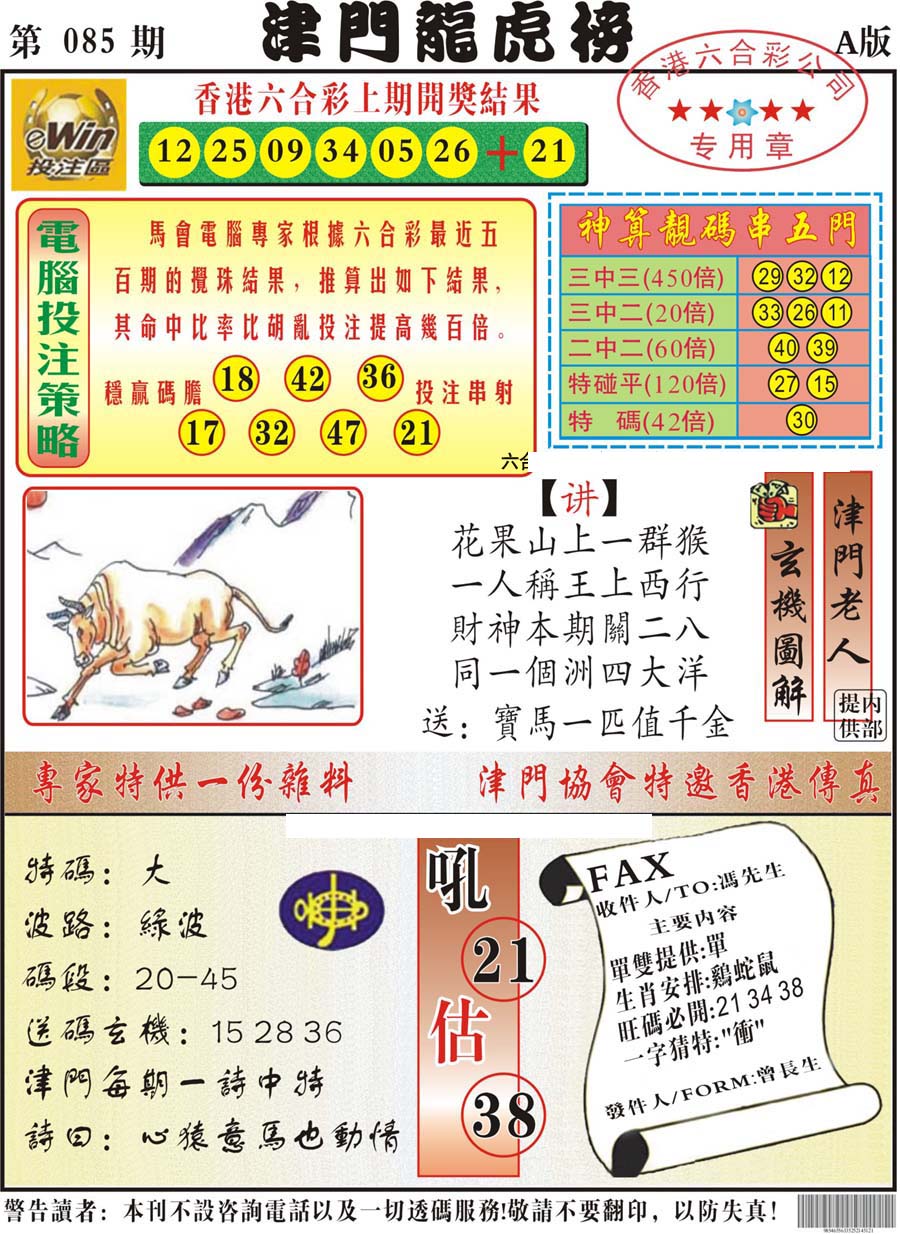 第 085 期
津門龍虎榜
A版
eWin
投注區
香港六合彩上期開獎結果
12 25 09 34 05 26 + 21
香港六合彩公司
★★★★
专用章
電腦投注策略
馬會電腦專家根據六合彩最近五
百期的攪珠結果，推算出如下結果，
其命中比率比胡亂投注提高幾百倍。
穩贏碼膽 18 42 36 投注串射
17 32 47 21
六合
神算靚碼串五門
三中三(450倍) 29 32 12
三中二(20倍) 33 26 11
二中二(60倍) 40 39
特碰平(120倍) 27 15
特 碼(42倍) 30
【讲】
花果山上一群猴
一人稱王上西行
財神本期關二八
同一個洲四大洋
送：寶馬一匹值千金
玄機圖解
津門老人
内部提供
專家特供一份雜料
津門協會特邀香港傳真
特碼：大
波路：綠波
碼段：20-45
送碼玄機：15 28 36
津門每期一詩中特
詩曰：心猿意馬也動情
吼
21
估
38
FAX
收件人/TO:馮先生
主要内容
單雙提供:單
生肖安排:鷄蛇鼠
旺碼必開:21 34 38
一字猜特:"衝"
發件人/FORM:曾長生
警告讀者：本刊不設咨詢電話以及一切透碼服務!敬請不要翻印，以防失真！